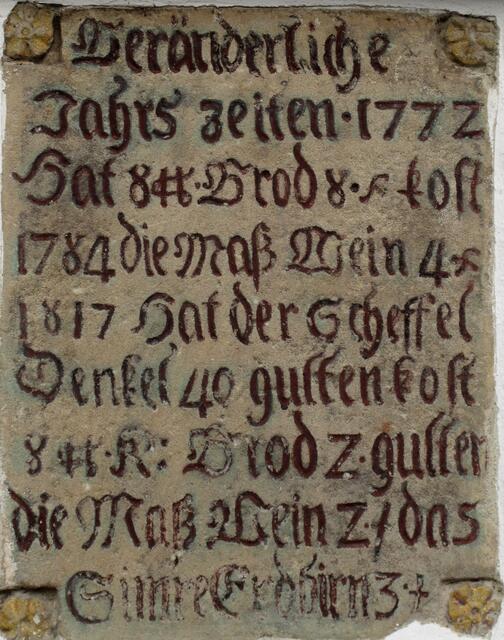 Veränderliche
Jahrs zeiten·1772
Hat 8 ℔·Brod 8·x kost
1784 die Maß Wein 4 x
1817 Hat der Scheffel
Denkel 40 gulten kost
8 ℔·K: Brod 2·gulten
die Maß Wein 2·f das
Simre Erdbirn 3 f